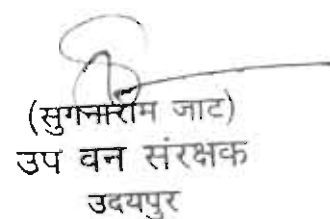 (सुगनाराम जाट)
उप वन संरक्षक
उदयपुर